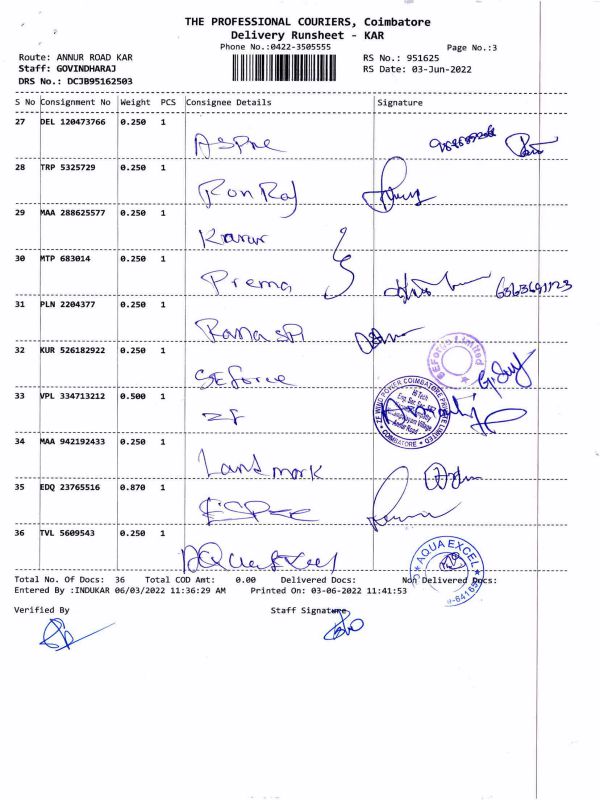 THE PROFESSIONAL COURIERS, Coimbatore
Delivery Runsheet - KAR
Phone No.:0422-3505555
Page No.:3
Route: ANNUR ROAD KAR
RS No.: 951625
Staff: GOVINDHARAJ
RS Date: 03-Jun-2022
DRS No.: DCJB95162503
S No Consignment No Weight PCS Consignee Details Signature
27 DEL 120473766 0.250 1
28 TRP 5325729 0.250 1
Ron Raj
29 MAA 288625577 0.250 1
30 MTP 683014 0.250 1
Prema
31 PLN 2204377 0.250 1
32 KUR 526182922 0.250 1
SEforce
SEForce Limited
33 VPL 334713212 0.500 1
ZF
ZF WIND POWER COIMBATORE PRIVATE LIMITED
COIMBATORE
34 MAA 942192433 0.250 1
Landmark
35 EDQ 23765516 0.870 1
36 TVL 5609543 0.250 1
AQUA EXCEL
Total No. Of Docs: 36 Total COD Amt: 0.00 Delivered Docs: Non Delivered Docs:
Entered By :INDUKAR 06/03/2022 11:36:29 AM Printed On: 03-06-2022 11:41:53
Verified By Staff Signature